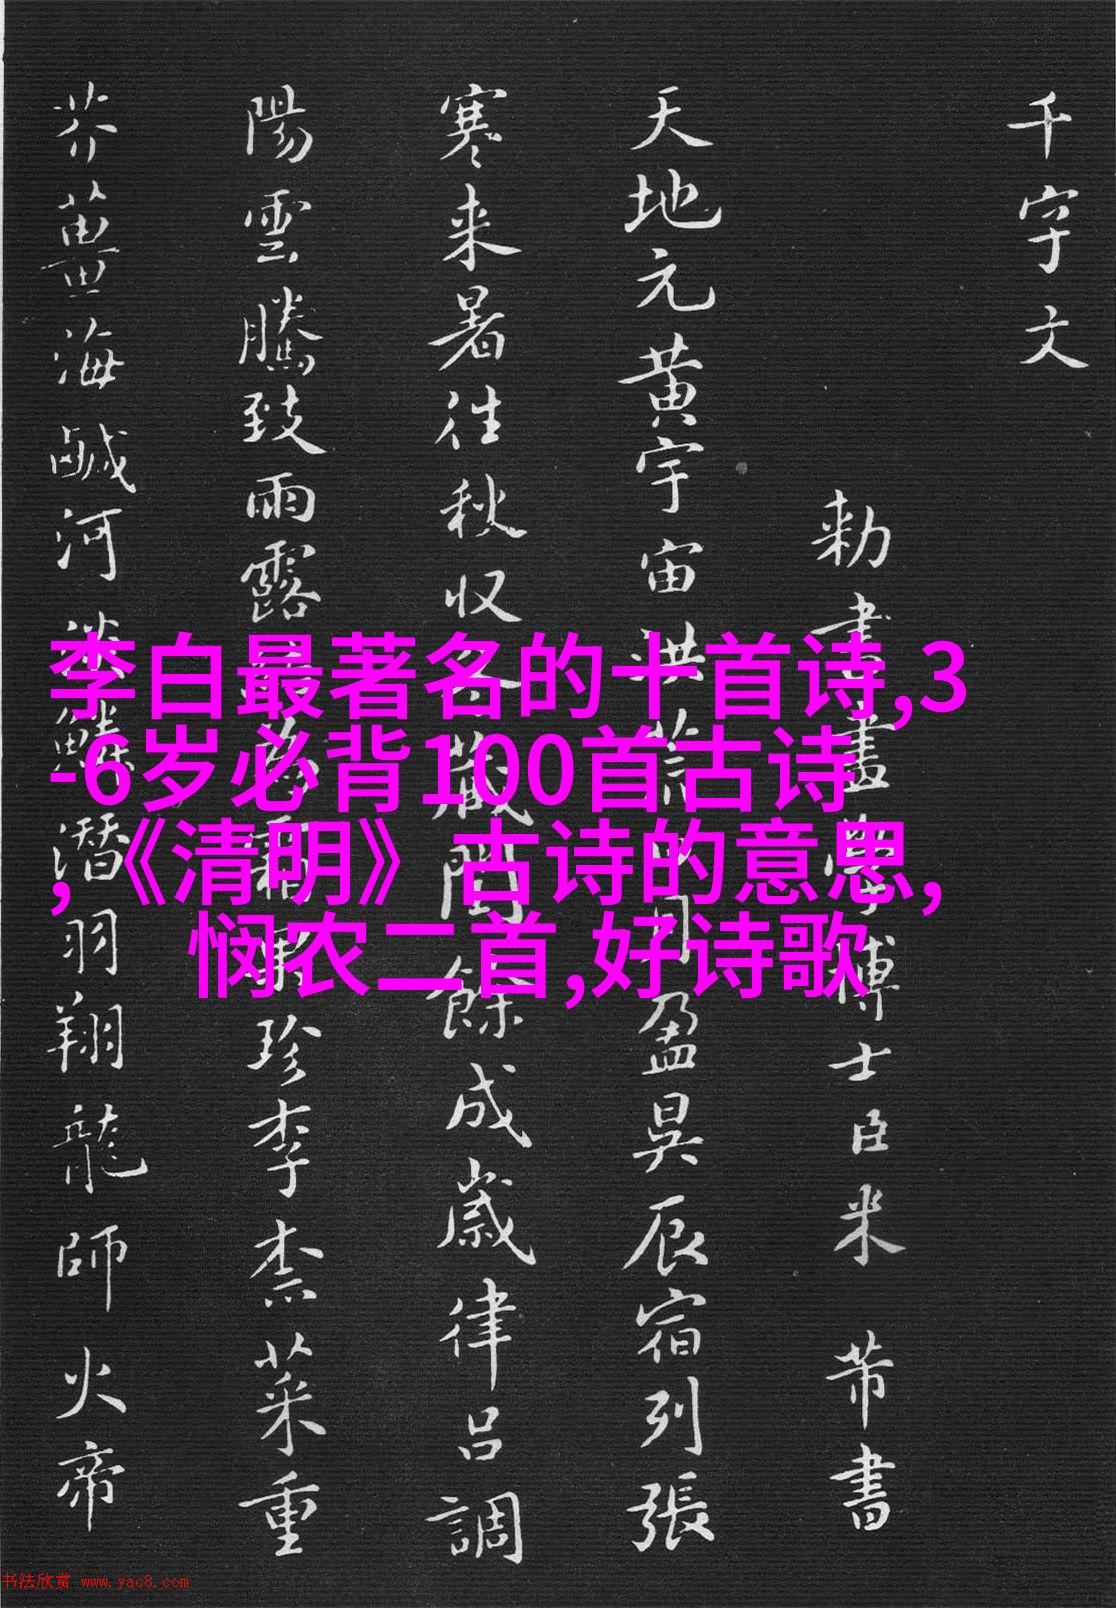 千字文
勑書畫學博士臣米芾書
天地元黄宇宙洪荒日月盈昃辰宿列張
寒来暑往秋收冬藏閏餘成歲律吕調
陽雲騰致雨露結為霜果珍李柰菜重
芥薑海鹹河淡鱗潛羽翔龍師火帝
李白最著名的十首诗,3
-6岁必背100首古诗
,《清明》古诗的意思,
悯农二首,好诗歌
书法欣赏 www.yac8.com